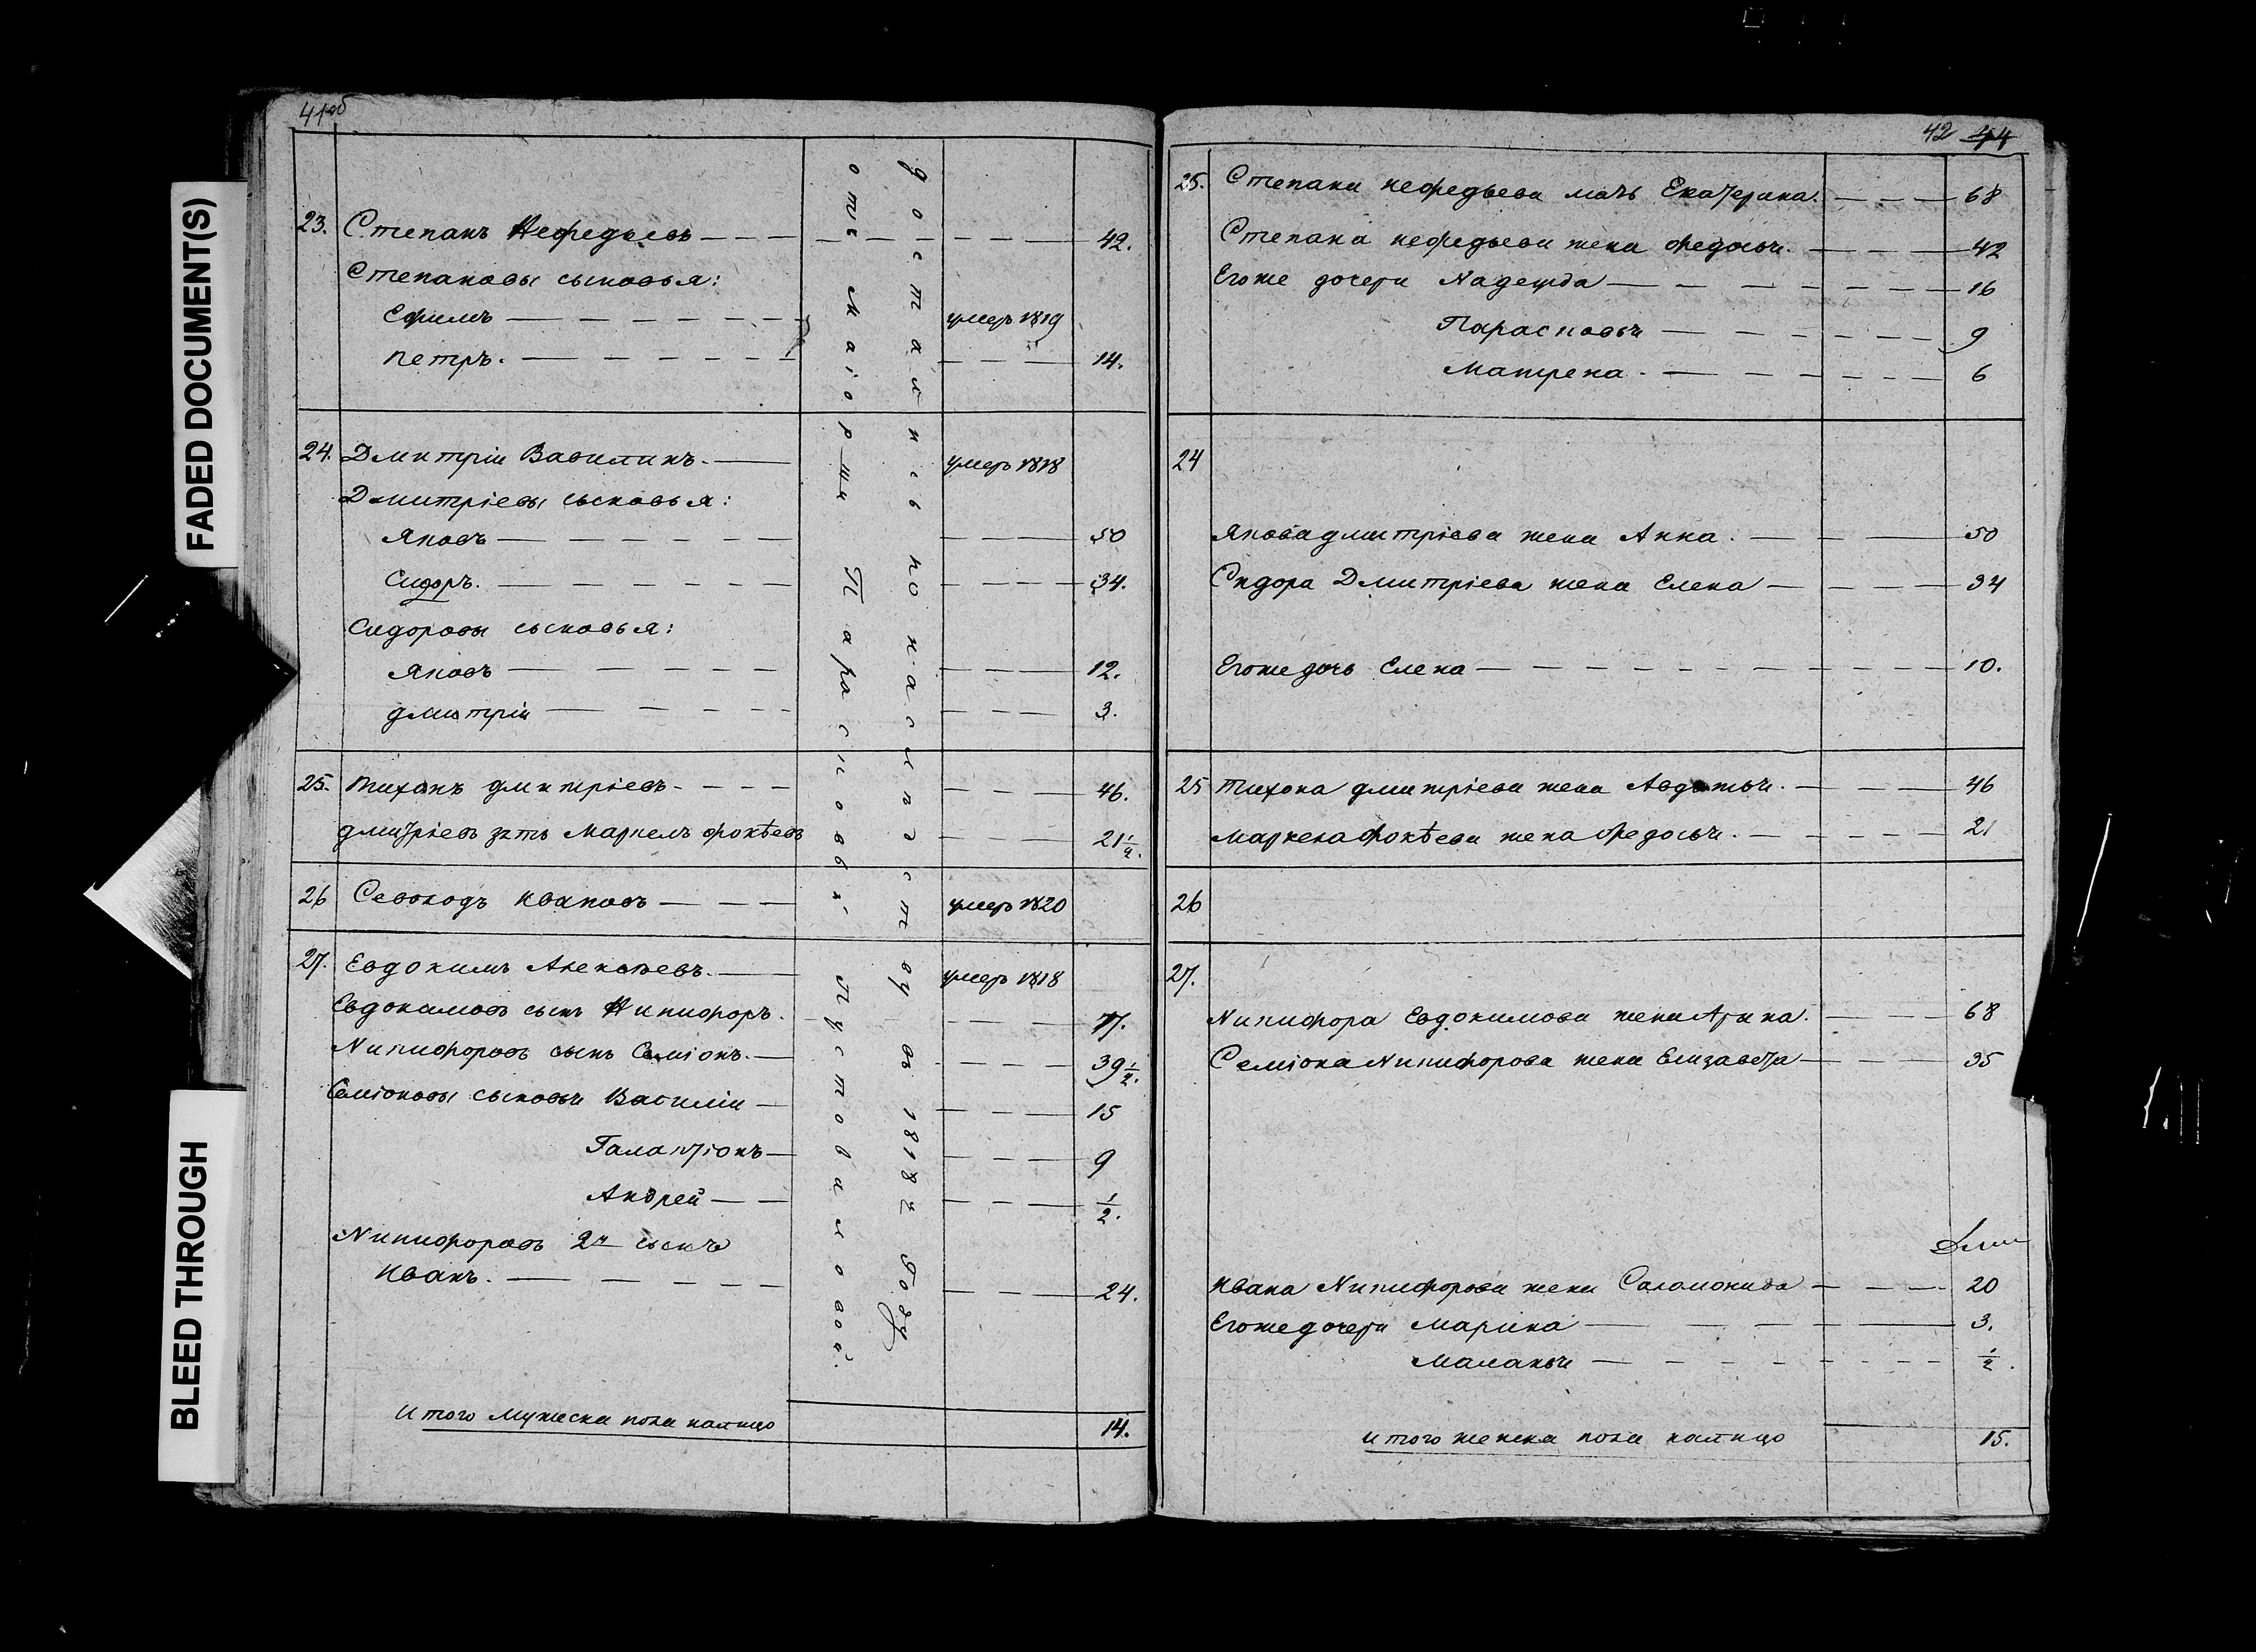 FADED DOCUMENT(S)
BLEED THROUGH
41об
23. Степанъ Нефедьевъ 42.
Степановы сыновья:
Ефимъ умеръ 1819
Петръ. 14.
24. Дмитріи Василинъ умеръ 1818
Дмитріевы сыновья:
Яковъ 50
Сидоръ. 34.
Сидоровы сыновья:
Яковъ 12.
дмитріи 3.
25. Тихонъ дмитріевъ 46.
дмитріевъ зять Маркелъ фокѣевъ 21 1/2.
26 Севолодъ Ивановъ умеръ 1820
27. Евдокимъ Алексѣевъ. умеръ 1818
Евдокимовъ сынъ Никифоръ. 77.
Никифоровъ сынъ Семіонъ. 39 1/2.
Семіоновы сыновьи Василіи 15
Галактіонъ 9
Андрей 1/2.
Никифоровъ 2й сынъ
Иванъ. 24.
Итого мужеска пола налицо 14.
отъ маіорши Парасковьи Пустоваловой
досталис по наследству въ 1818м году
42 44
Степана нефедьева мать Екатерина. 68
Степана нефедьева жена федосьи. 42
Егоже дочери Надежда 16
Парасковьи 9
Матрена 6
24
Якова дмитріева жена Анна. 50
Сидора Дмитріева жена Елена 34
Егоже дочь Елена 10.
25 Тихона дмитріева жена Авдотьи. 46
Маркела фокѣева жена федосьи. 21
26
27.
Никифора Евдокимова жена Арина. 68
Семіона Никифорова жена Елизавета 35
Ивана Никифорова жена Саломонида 20
Егоже дочери Марина 3.
Маланьи 1/2.
Итого женска пола налицо 15.